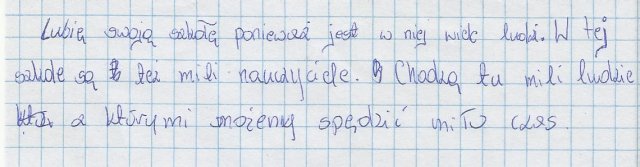 Lubię swoją szkołę ponieważ jest w niej wiele ludzi. W tej
szkole są też mili nauczyciele. Chodzą tu mili ludzie
z którymi możemy spędzić miło czas.